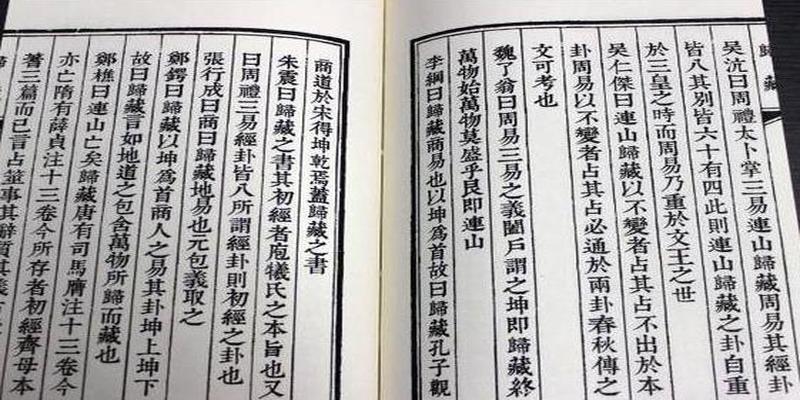 歸藏
吳沆曰周禮太卜掌三易連山歸藏周易其經卦
皆八其別皆六十有四此則連山歸藏之卦自重
於三皇之時而周易乃重於文王之世
吳仁傑曰連山歸藏以不變者占其占不出於本
卦周易以不變者占其占必通於兩卦春秋傳之
文可考也
魏了翁曰周易三易之義闔戶謂之坤即歸藏終
萬物始萬物莫盛乎艮即連山
李綱曰歸藏商易也以坤為首故曰歸藏孔子觀
商道於宋得坤乾焉蓋歸藏之書
朱震曰歸藏之書其初經者庖犧氏之本旨也又
曰周禮三易經卦皆八所謂經卦則初經之卦也
張行成曰商曰歸藏地易也元包義取之
鄭鍔曰歸藏以坤為首商人之易其卦坤上坤下
故曰歸藏言如地道之包含萬物所歸而藏也
鄭樵曰連山亡矣歸藏唐有司馬膺注十三卷今
亦亡隋有薛貞注十三卷今所存者初經齊母本
蓍三篇而已言占筮事其辭質其義古